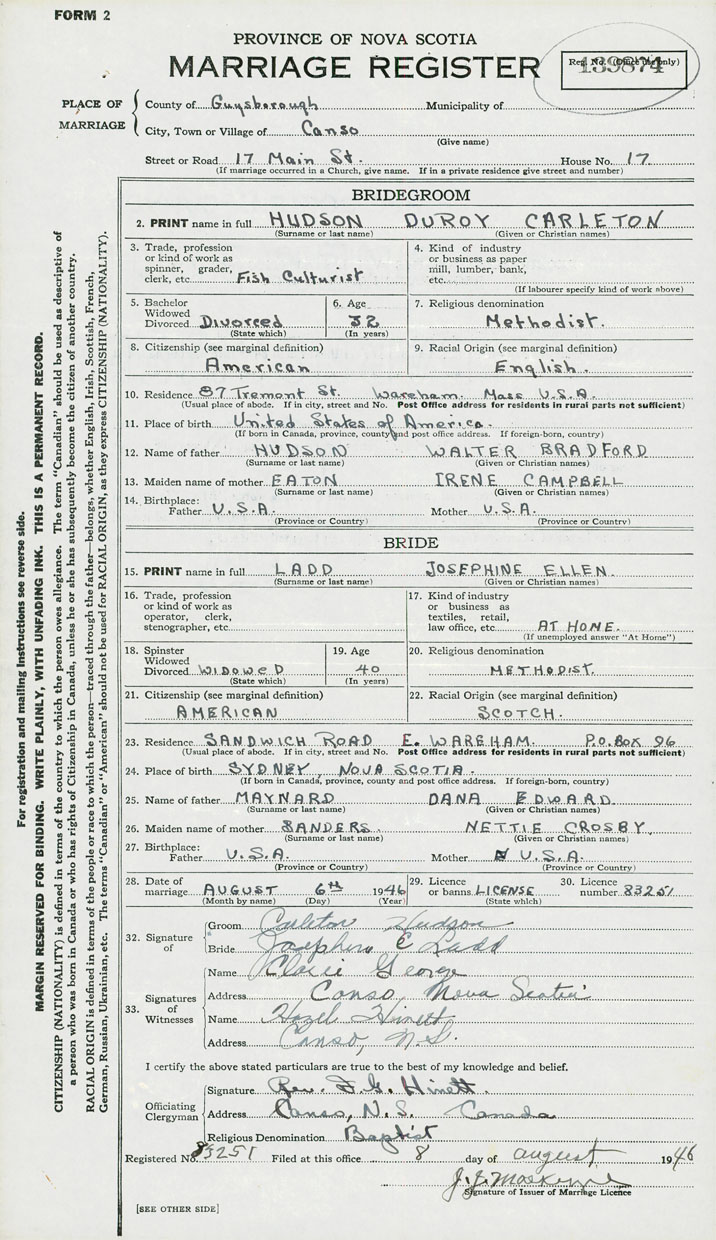 FORM 2
PROVINCE OF NOVA SCOTIA
MARRIAGE REGISTER
Reg. No. (Office use only)
139874
PLACE OF MARRIAGE
County of Guysborough Municipality of
City, Town or Village of Canso
(Give name)
Street or Road 17 Main St. House No. 17.
(If marriage occurred in a Church, give name. If in a private residence give street and number)
BRIDEGROOM
2. PRINT name in full HUDSON DUROY CARLETON
(Surname or last name) (Given or Christian names)
3. Trade, profession or kind of work as spinner, grader, clerk, etc. Fish Culturist
4. Kind of industry or business as paper mill, lumber, bank, etc.
(If labourer specify kind of work above)
5. Bachelor Widowed Divorced Divorced
(State which)
6. Age 32
(In years)
7. Religious denomination
Methodist.
8. Citizenship (see marginal definition)
American
9. Racial Origin (see marginal definition)
English.
10. Residence 87 Tremont St. Wareham. Mass U.S.A.
(Usual place of abode. If in city, street and No. Post Office address for residents in rural parts not sufficient)
11. Place of birth United States of America.
(If born in Canada, province, county and post office address. If foreign-born, country)
12. Name of father HUDSON WALTER BRADFORD
(Surname or last name) (Given or Christian names)
13. Maiden name of mother EATON IRENE CAMPBELL
(Surname or last name) (Given or Christian names)
14. Birthplace: Father U.S.A. Mother U.S.A.
(Province or Country) (Province or Country)
BRIDE
15. PRINT name in full LADD JOSEPHINE ELLEN.
(Surname or last name) (Given or Christian names)
16. Trade, profession or kind of work as operator, clerk, stenographer, etc.
17. Kind of industry or business as textiles, retail, law office, etc. AT HOME.
(If unemployed answer "At Home")
18. Spinster Widowed Divorced WIDOWED
(State which)
19. Age 40
(In years)
20. Religious denomination
METHODIST.
21. Citizenship (see marginal definition)
AMERICAN
22. Racial Origin (see marginal definition)
SCOTCH.
23. Residence SANDWICH ROAD E. WAREHAM. P.O. BOX 96
(Usual place of abode. If in city, street and No. Post Office address for residents in rural parts not sufficient)
24. Place of birth SYDNEY, NOVA SCOTIA.
(If born in Canada, province, county and post office address. If foreign-born, country)
25. Name of father MAYNARD DANA EDWARD.
(Surname or last name) (Given or Christian names)
26. Maiden name of mother SANDERS. NETTIE CROSBY.
(Surname or last name) (Given or Christian names)
27. Birthplace: Father U.S.A. Mother U.S.A.
(Province or Country) (Province or Country)
28. Date of marriage AUGUST 6TH 1946
(Month by name) (Day) (Year)
29. Licence or banns LICENSE
(State which)
30. Licence number 83251
32. Signature of
Groom Carleton Hudson
Bride Josephine E Ladd
33. Signatures of Witnesses
Name George
Address Canso, Nova Scotia
Name Hazel Hinett
Address Canso, N.S.
I certify the above stated particulars are true to the best of my knowledge and belief.
Officiating Clergyman
Signature Rev. F. G. Hinett.
Address Canso, N.S. Canada
Religious Denomination Baptist
Registered No. 83251 Filed at this office 8 day of august 1946
Signature of Issuer of Marriage Licence
[SEE OTHER SIDE]
For registration and mailing instructions see reverse side.
MARGIN RESERVED FOR BINDING. WRITE PLAINLY, WITH UNFADING INK. THIS IS A PERMANENT RECORD.
CITIZENSHIP (NATIONALITY) is defined in terms of the country to which the person owes allegiance. The term "Canadian" should be used as descriptive of
a person who was born in Canada or who has rights of Citizenship in Canada, unless he or she has subsequently become the citizen of another country.
RACIAL ORIGIN is defined in terms of the people or race to which the person—traced through the father—belongs, whether English, Irish, Scottish, French,
German, Russian, Ukrainian, etc. The terms "Canadian" or "American" should not be used for RACIAL ORIGIN, as they express CITIZENSHIP (NATIONALITY).